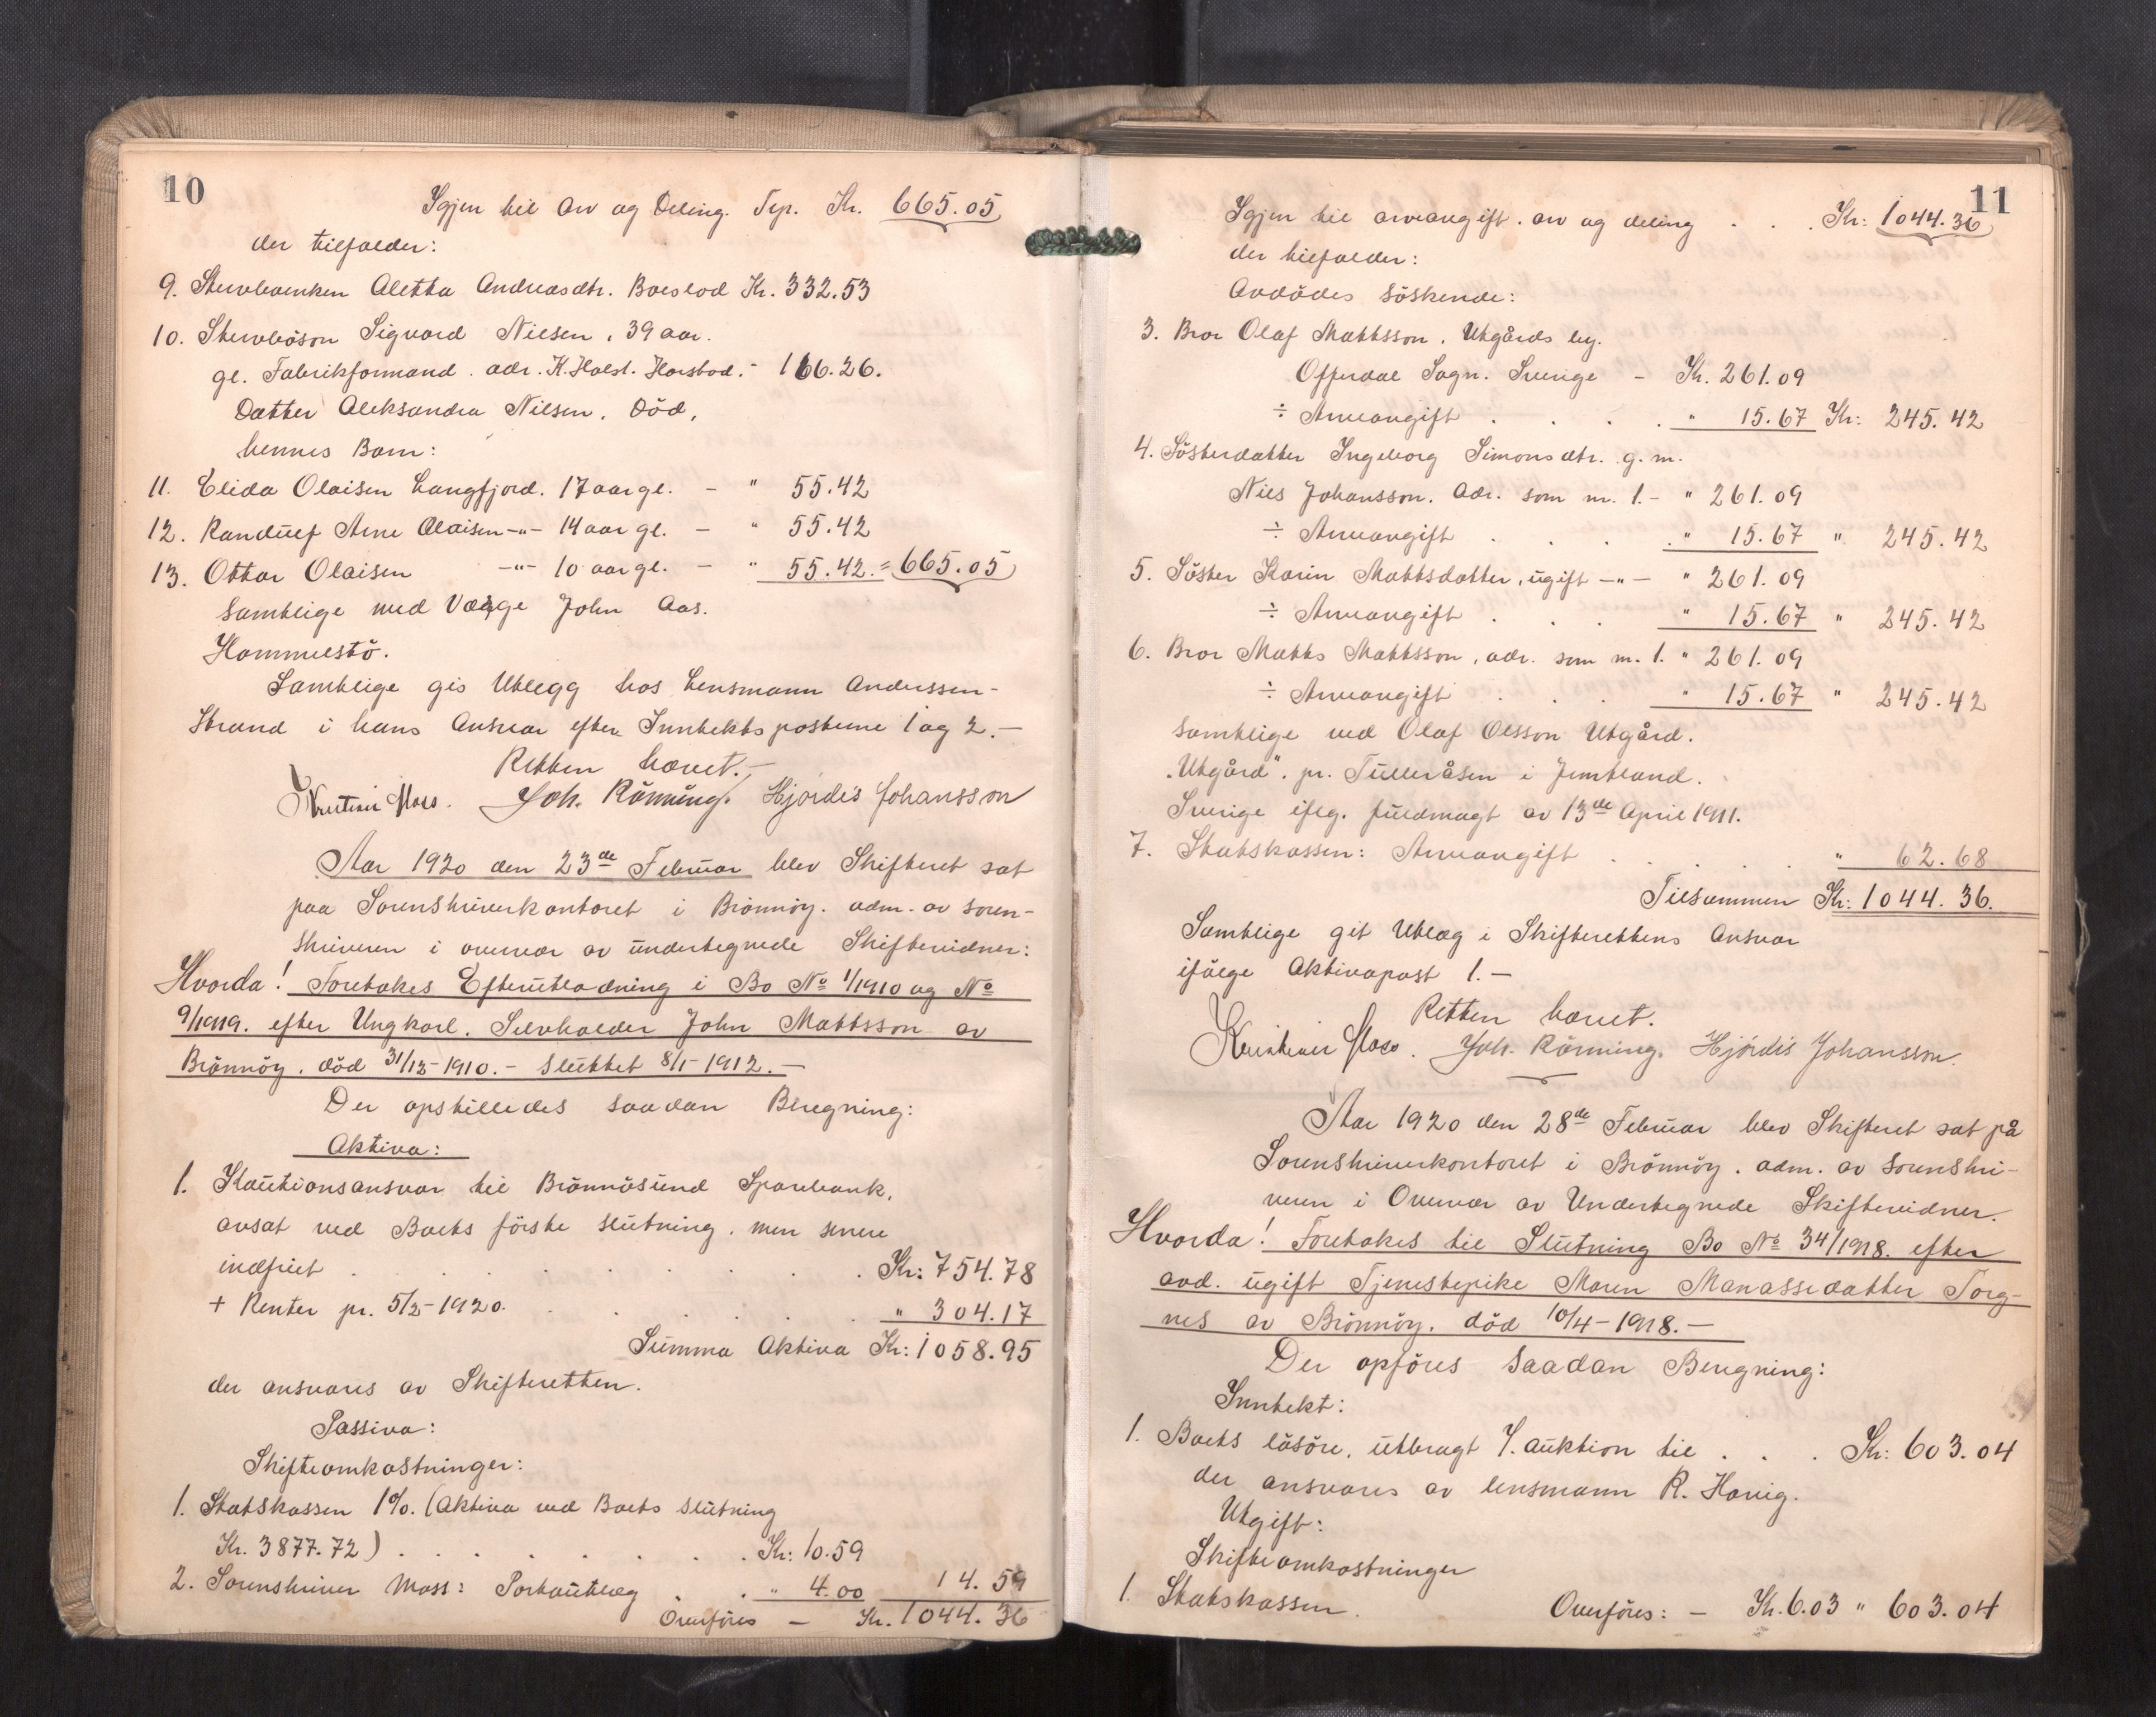 10
Igjen til Arv og Deling. Tep. Kr. 665.05
der tilfalder:
9. Stervboenken Aletta Andreasdtr. Boeslod Kr. 332.53
10. Stervbosøn Sigvard Nilsen, 39 aar.
gl. Fabrikformand. adr. K. Holst. Harstad. - 166.26.
Datter Aleksandra Nilsen. Död,
hennes Barn:
11. Elida Olaisen Langfjord. 17 aar gl. - " 55.42
12. Randulf Arne Olaisen -"- 14 aar gl. - " 55.42
13. Ottar Olaisen -"- 10 aar gl. - " 55.42. = 665.05
samtlige med Værge John Aas.
Hommelstö.
Samtlige gis Utlegg hos Lensmann Anderssen-
Strand i hans Ansvar efter Inntektsposterne 1 og 2.-
Retten hævet.-
Kristian Moss. Joh. Rönning. Hjördis Johansson
Aar 1920 den 23de Februar blev Skifteret sat
paa Sorenskriverkontoret i Brönnöy. adm. av soren-
skriveren i overvær av undertegnede Skiftevidner:
Hvorda! Foretokes Efterutlodning i Bo No 1/1910 og No
9/1919. efter Ungkarl. Selvholder John Mattsson av
Brönnöy. död 31/12-1910.- Sluttet 8/1-1912.-
Der opstilledes saadan Beregning:
Aktiva:
1. Kautionsansvar til Brönnösund Sparebank,
avsat ved Boets förste slutning, men senere
indfriet . . . Kr: 754.78
+ Renter pr. 5/2-1920. . . . " 304.17
Summa Aktiva Kr: 1058.95
der ansvares av Skifteretten.
Passiva:
Skifteomkostninger:
1. Statskassen 1%. (Aktiva ved Boets slutning
Kr. 3877.72) . . . Kr: 10.59
2. Sorenskriver Moss: Portoutlæg . . " 4.00 14.59
Overföres - Kr. 1044.36
11
Igjen til arveavgift. arv og deling . . . Kr: 1044.36
der tilfalder:
Avdödes Söskende:
3. Bror Olaf Mattsson. Utgårds by.
Offerdal Sogn. Sverige - Kr. 261.09
÷ Arveavgift . . . . " 15.67 Kr: 245.42
4. Sösterdatter Ingeborg Simonsdtr. g. m.
Nils Johansson. Adr. som nr. 1.- " 261.09
÷ Arveavgift . . . " 15.67 " 245.42
5. Söster Karin Mattsdatter, ugift -"- " 261.09
÷ Arveavgift . . . " 15.67 " 245.42
6. Bror Matts Mattsson, adr. som nr. 1. " 261.09
÷ Arveavgift . . . " 15.67 " 245.42
samtlige ved Olaf Olsson Utgård.
"Utgård". pr. Tulleråsen i Jemtland.
Sverige iflg. fuldmagt av 13de April 1911.
7. Statskassen: Arveavgift . . . . " 62.68
Tilsammen Kr: 1044.36.
Samtlige git Utlæg i Skifterettens Ansvar
ifölge Aktivapost 1.-
Retten hævet.
Kristian Moss. Joh. Rönning. Hjördis Johansson.
Aar 1920 den 28de Februar blev Skifteret sat på
Sorenskriverkontoret i Brönnöy. adm. av Sorenskri-
veren i Overvær av Undertegnede Skiftevidner.
Hvorda! Foretokes til Slutning Bo No 34/1918. efter
avd. ugift Tjenestepike Maren Manassedatter Torg-
nes av Brönnöy. död 10/4-1918.-
Der opföres Saadan Beregning:
Inntekt:
1. Boets lösöre, utbragt v. auktion til . . . Kr: 603.04
der ansvares av lensmann R. Havig.
Utgift:
Skifteomkostninger
1. Statskassen. Overföres: - Kr. 6.03 " 603.04